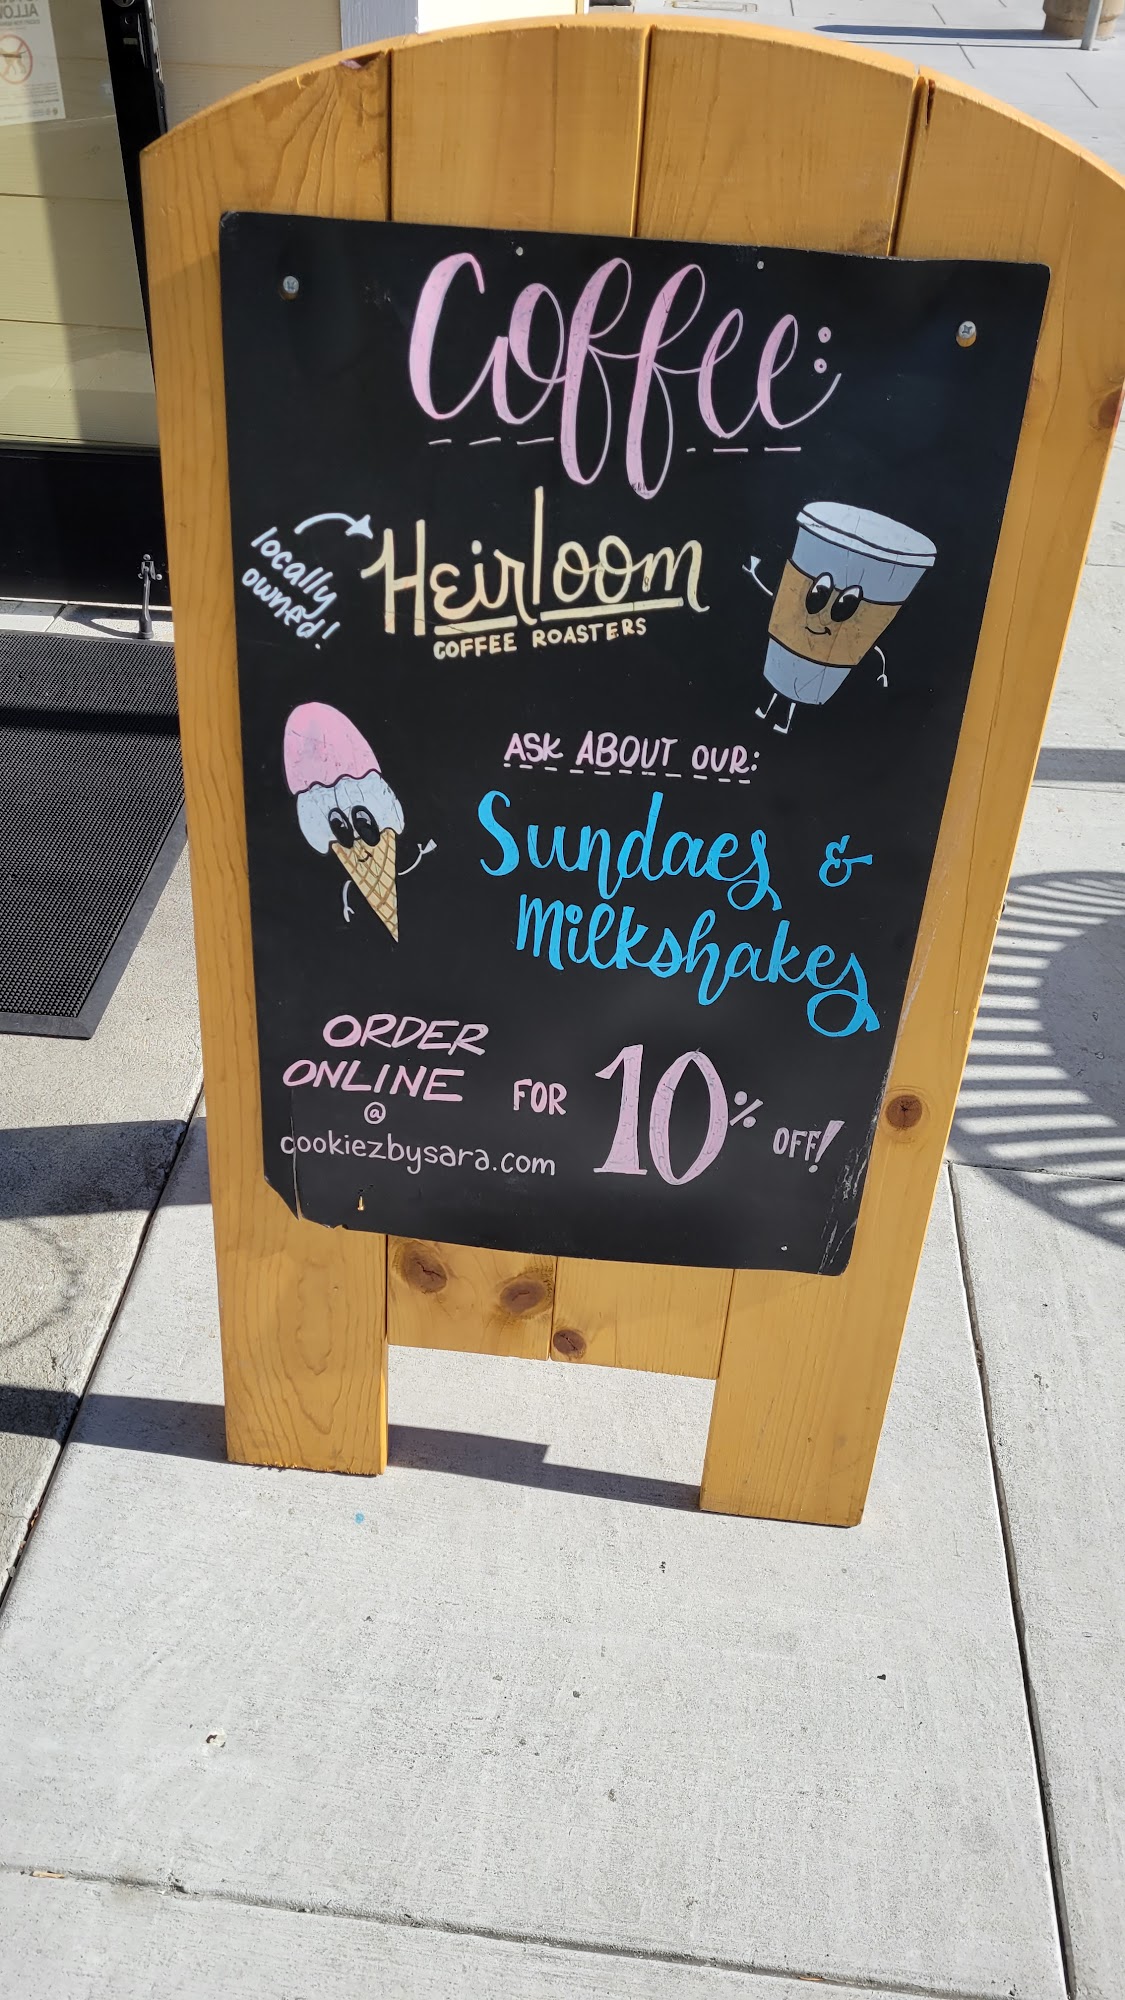 Coffee:
locally
owned!
Heirloom
COFFEE ROASTERS
ASK ABOUT OUR:
Sundaes &
Milkshakes
ORDER
ONLINE
@
cookiezbysara.com
FOR
10%
OFF!